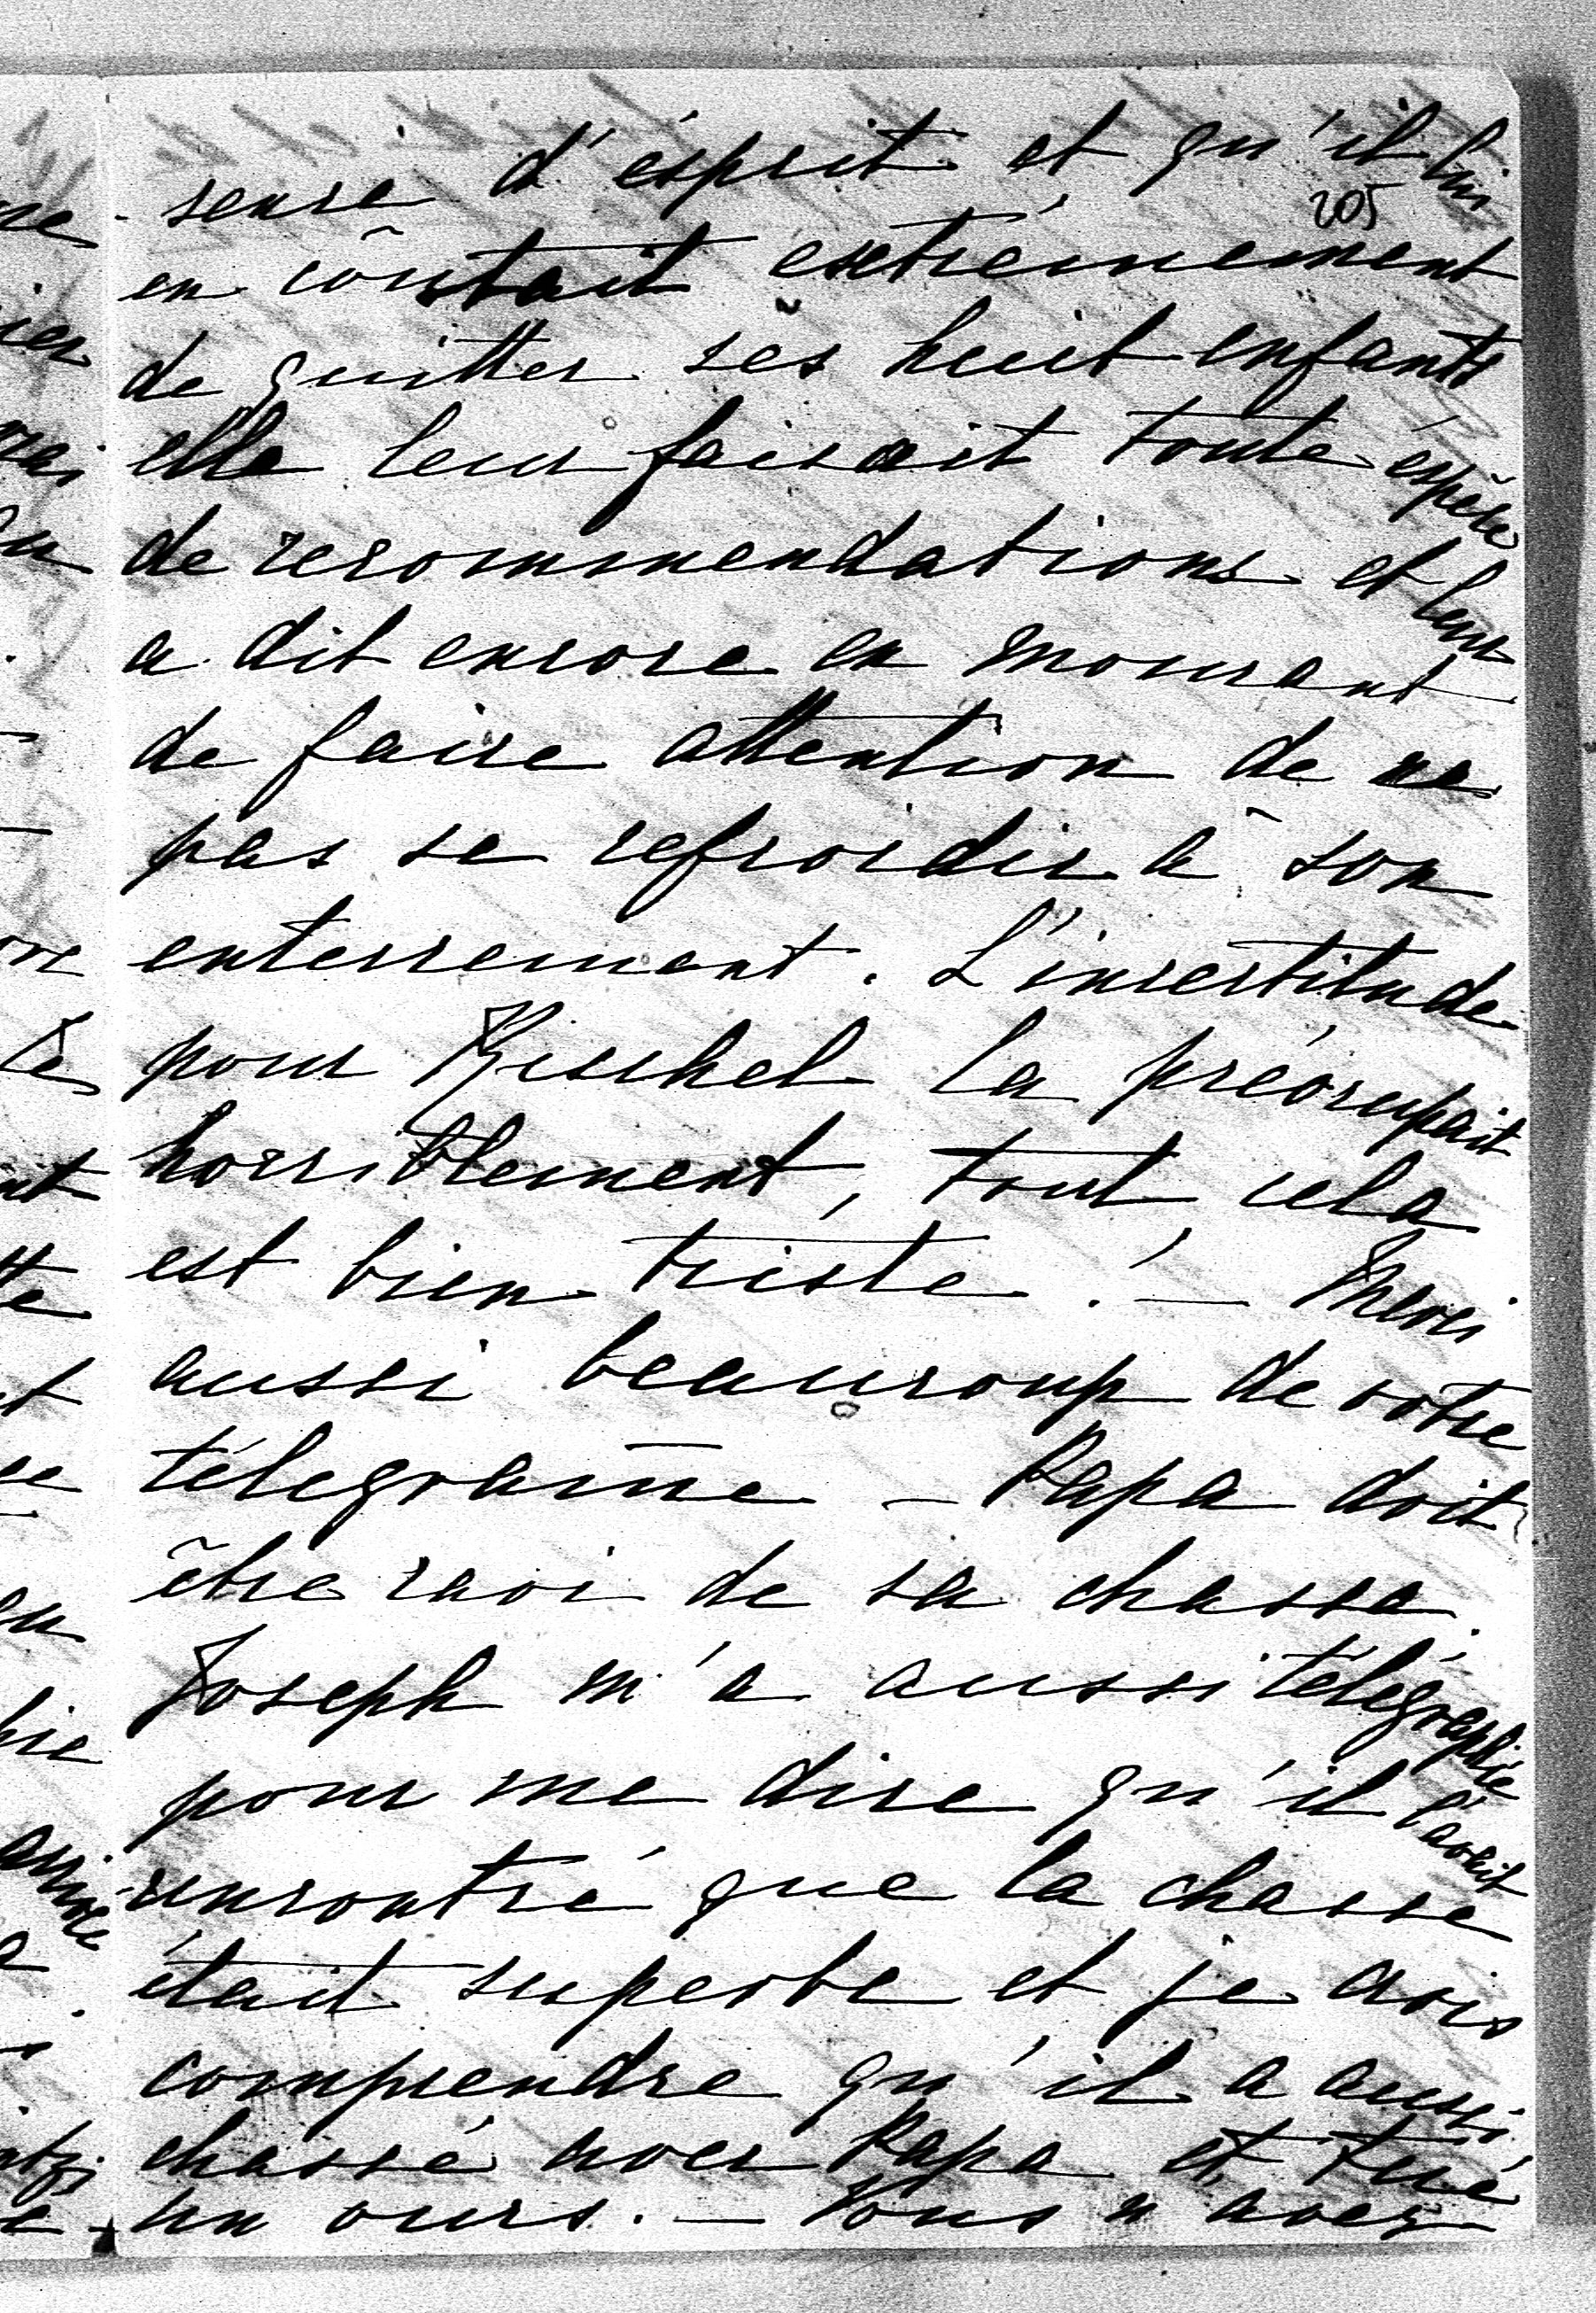 sence d'ésprit et qu'il lui
205
en côutait extrêmement
de quitter ses huit enfants
elle leur faisait toute éspèce
de recommendations et leur
a dit encore en mourant
de faire attention de ne
pas se refroidir à son
enterrement. L'incertitude
pour la préocupait
horriblement, tout cela
est bien triste! — Merci
aussi beaucoup de votre
télegrame — Papa doit
être ravi de sa chasse.
Joseph m'a aussi télégraphié
pour me dire qu'il l'avait
rencontré que la chasse
était superbe et je crois
comprendre qu'il a aussi
chassé avec Papa et tué
un ours. — Vous n'avez